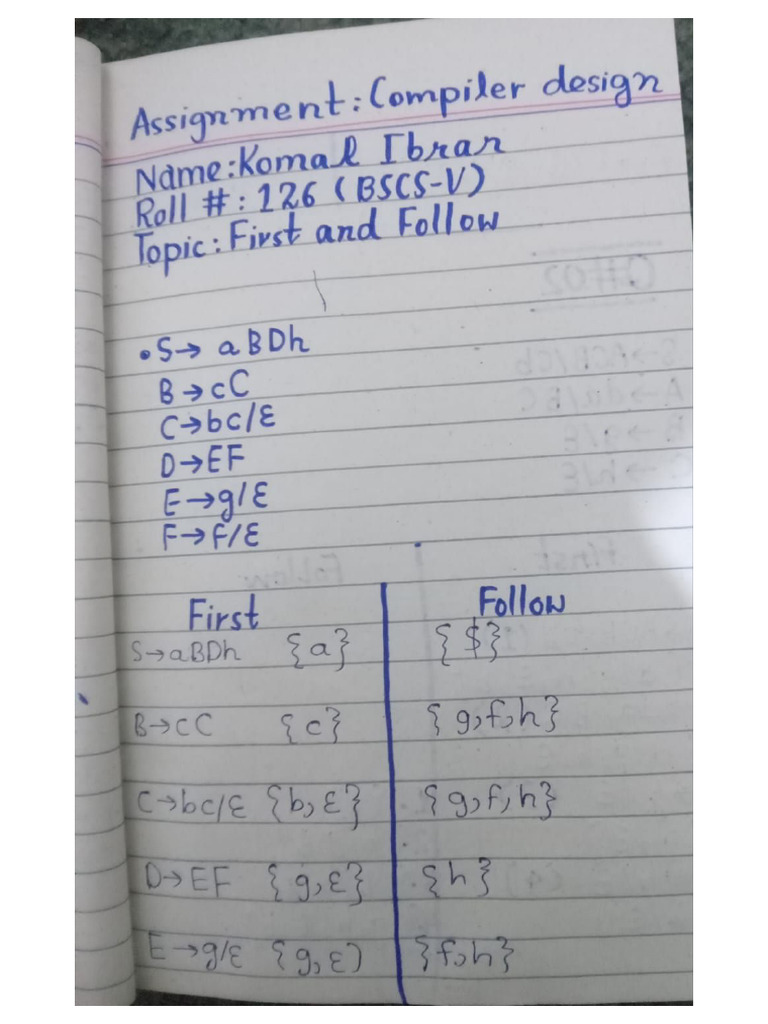 Assignment: Compiler design
Name: Komal Ibrar
Roll #: 126 (BSCS-V)
Topic: First and Follow
• S→ aBDh
B→cC
C→bc/ε
D→EF
E→g/ε
F→f/ε
First Follow
S→aBDh {a} {$}
B→cC {c} {g,f,h}
C→bc/ε {b,ε} {g,f,h}
D→EF {g,ε} {h}
E→g/ε {g,ε) {f,h}